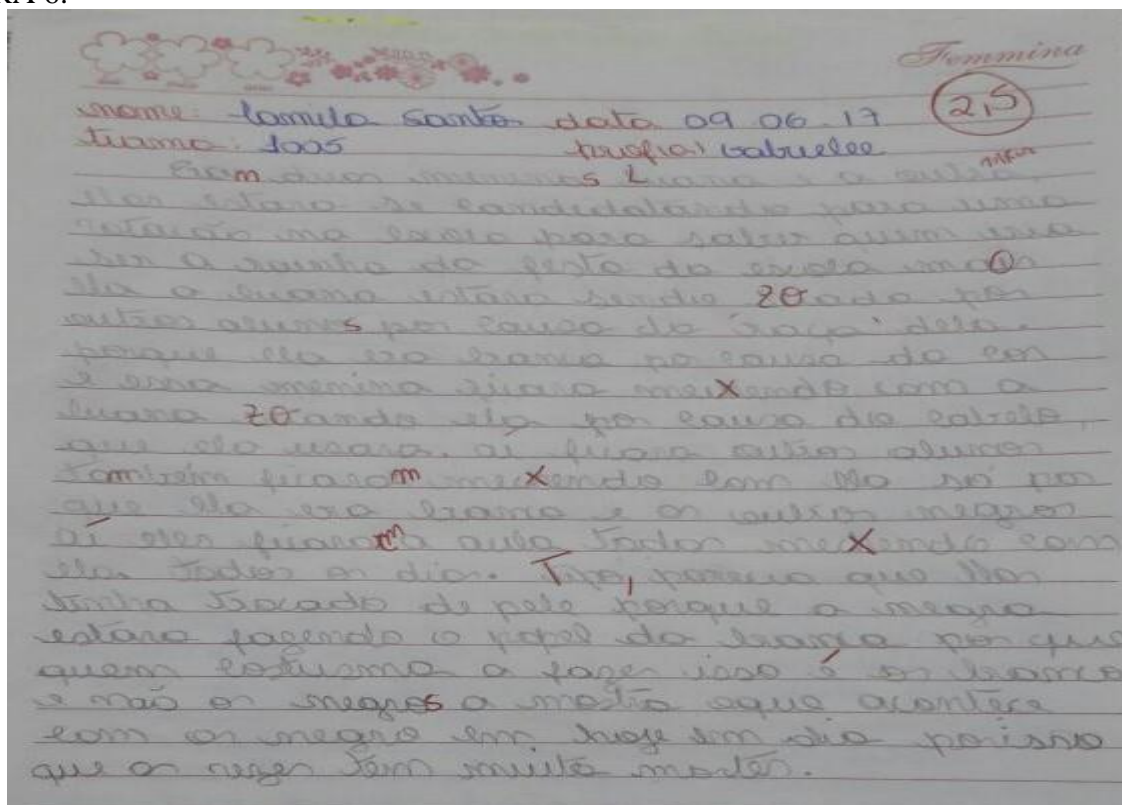 RA 6:
Femmina
nome: Camila Santos data 09 06 17 2,5
turma: 1005 profia: Gabrielee
Eram duas meninas Luana e a outra
elas estava se candidatando para uma
votação na escola para saber quem iria
ser a rainha da festa da escola mas
ela a Luana estava sendo zoada por
outros alunos por causa da "raça" dela.
porque ela era branca por causa da cor
e essa menina ficava mexendo com a
Luana zoando ela por causa do cabelo
que ela usava. aí ficava outros alunos
também ficaram mexendo com ela só por
que ela era branca e os outros negros
aí eles ficaram a aula todos mexendo com
ela todos os dias. Tipo, parecia que elas
tinha trocado de pele porque a negra
estava fazendo o papel da branca por que
quem costuma a fazer isso é os branco
e não os negros a mostra aque acontece
com os negro em hoje em dia por isso
que as vezes tem muita mortes.